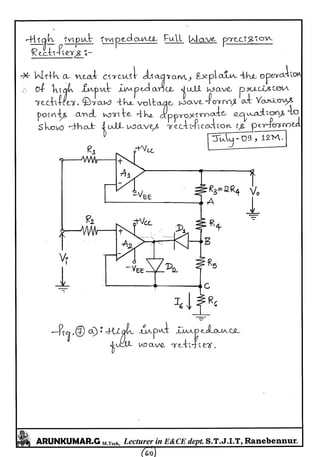 High input impedance Full Wave precision
Rectifiers :-
* With a neat circuit diagram, Explain the operation
of high input impedance full wave precision
rectifier. Draw the voltage wave forms at various
points and write the approximate equations to
show that full waves rectification is performed
July-09, 12M.
R1
+Vcc
+
A1
-
-VEE
R3=2R4
Vo
A
R2
+Vcc
+
A2
-
-VEE
D1
R4
B
D2
R5
Vi
C
I6
R6
Fig. 7 a): High input impedance
full wave retifier.
ARUNKUMAR.G M.Tech, Lecturer in E&CE dept. S.T.J.I.T, Ranebennur.
(60)